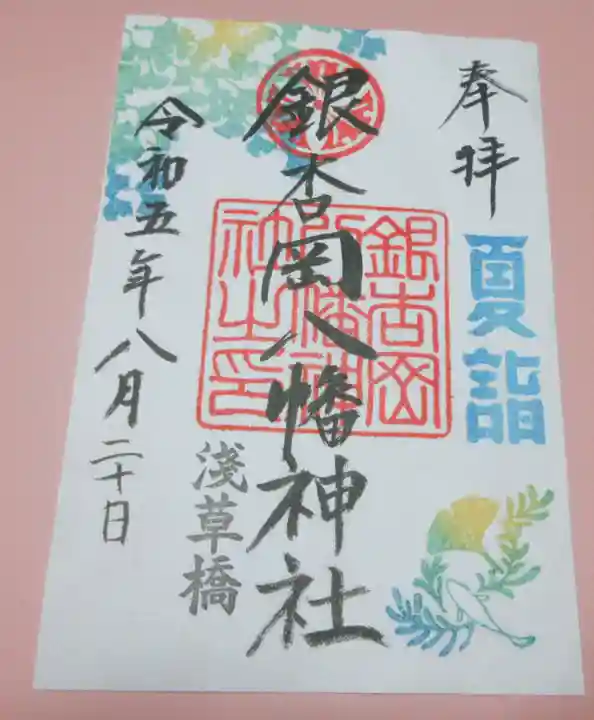 奉拝
夏詣
銀杏岡八幡神社
銀杏岡
八幡神
社之印
浅草橋
令和五年八月二十日